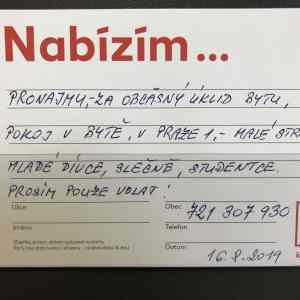 Nabízím...
PRONAJMU,-ZA OBČASNÝ ÚKLID BYTU,
POKOJ V BYTĚ, V PRAZE 1,- MALÉ STR
MLADÉ DÍVCE, SLEČNĚ, STUDENTCE.
PROSÍM POUZE VOLAT!
Ulice Obec
721 307 930
Jméno Telefon
Datum 16.8.2019